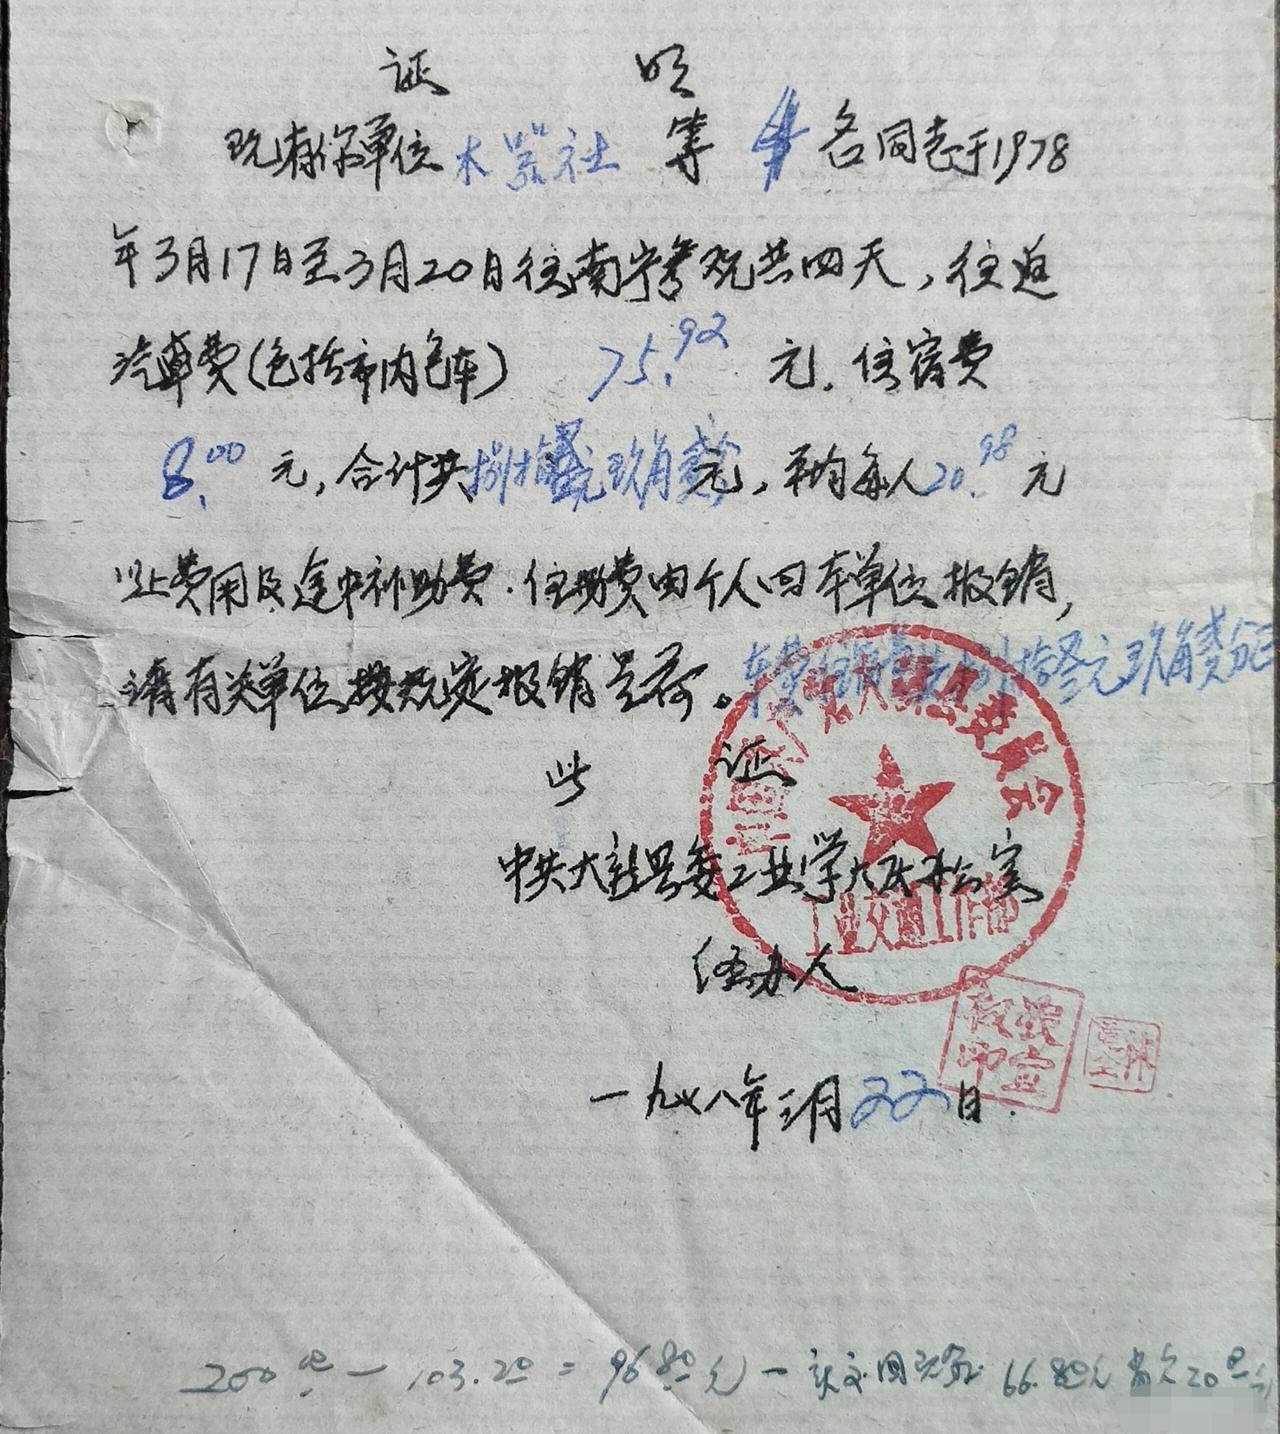 证 明
现有你单位木器社 等 4 名同志于1978
年3月17日至3月20日往南宁参观共四天,往返
汽車费(包括市内包车) 75.92 元.住宿费
8.00 元,合计共捌拾叁元玖角贰分元,平均每人20.98元
以上费用及途中补助费.住勤费由个人回本单位报销,
请有关单位按规定报销是荷。车费 捌拾叁元玖角贰分正
此 证
中共大新县委工业学大庆办公室
中国共产党大新县委员会
工业交通工作部
经办人
一九七八年三月22日
200.00 - 103.20 = 96.80元 - 66.80元 20